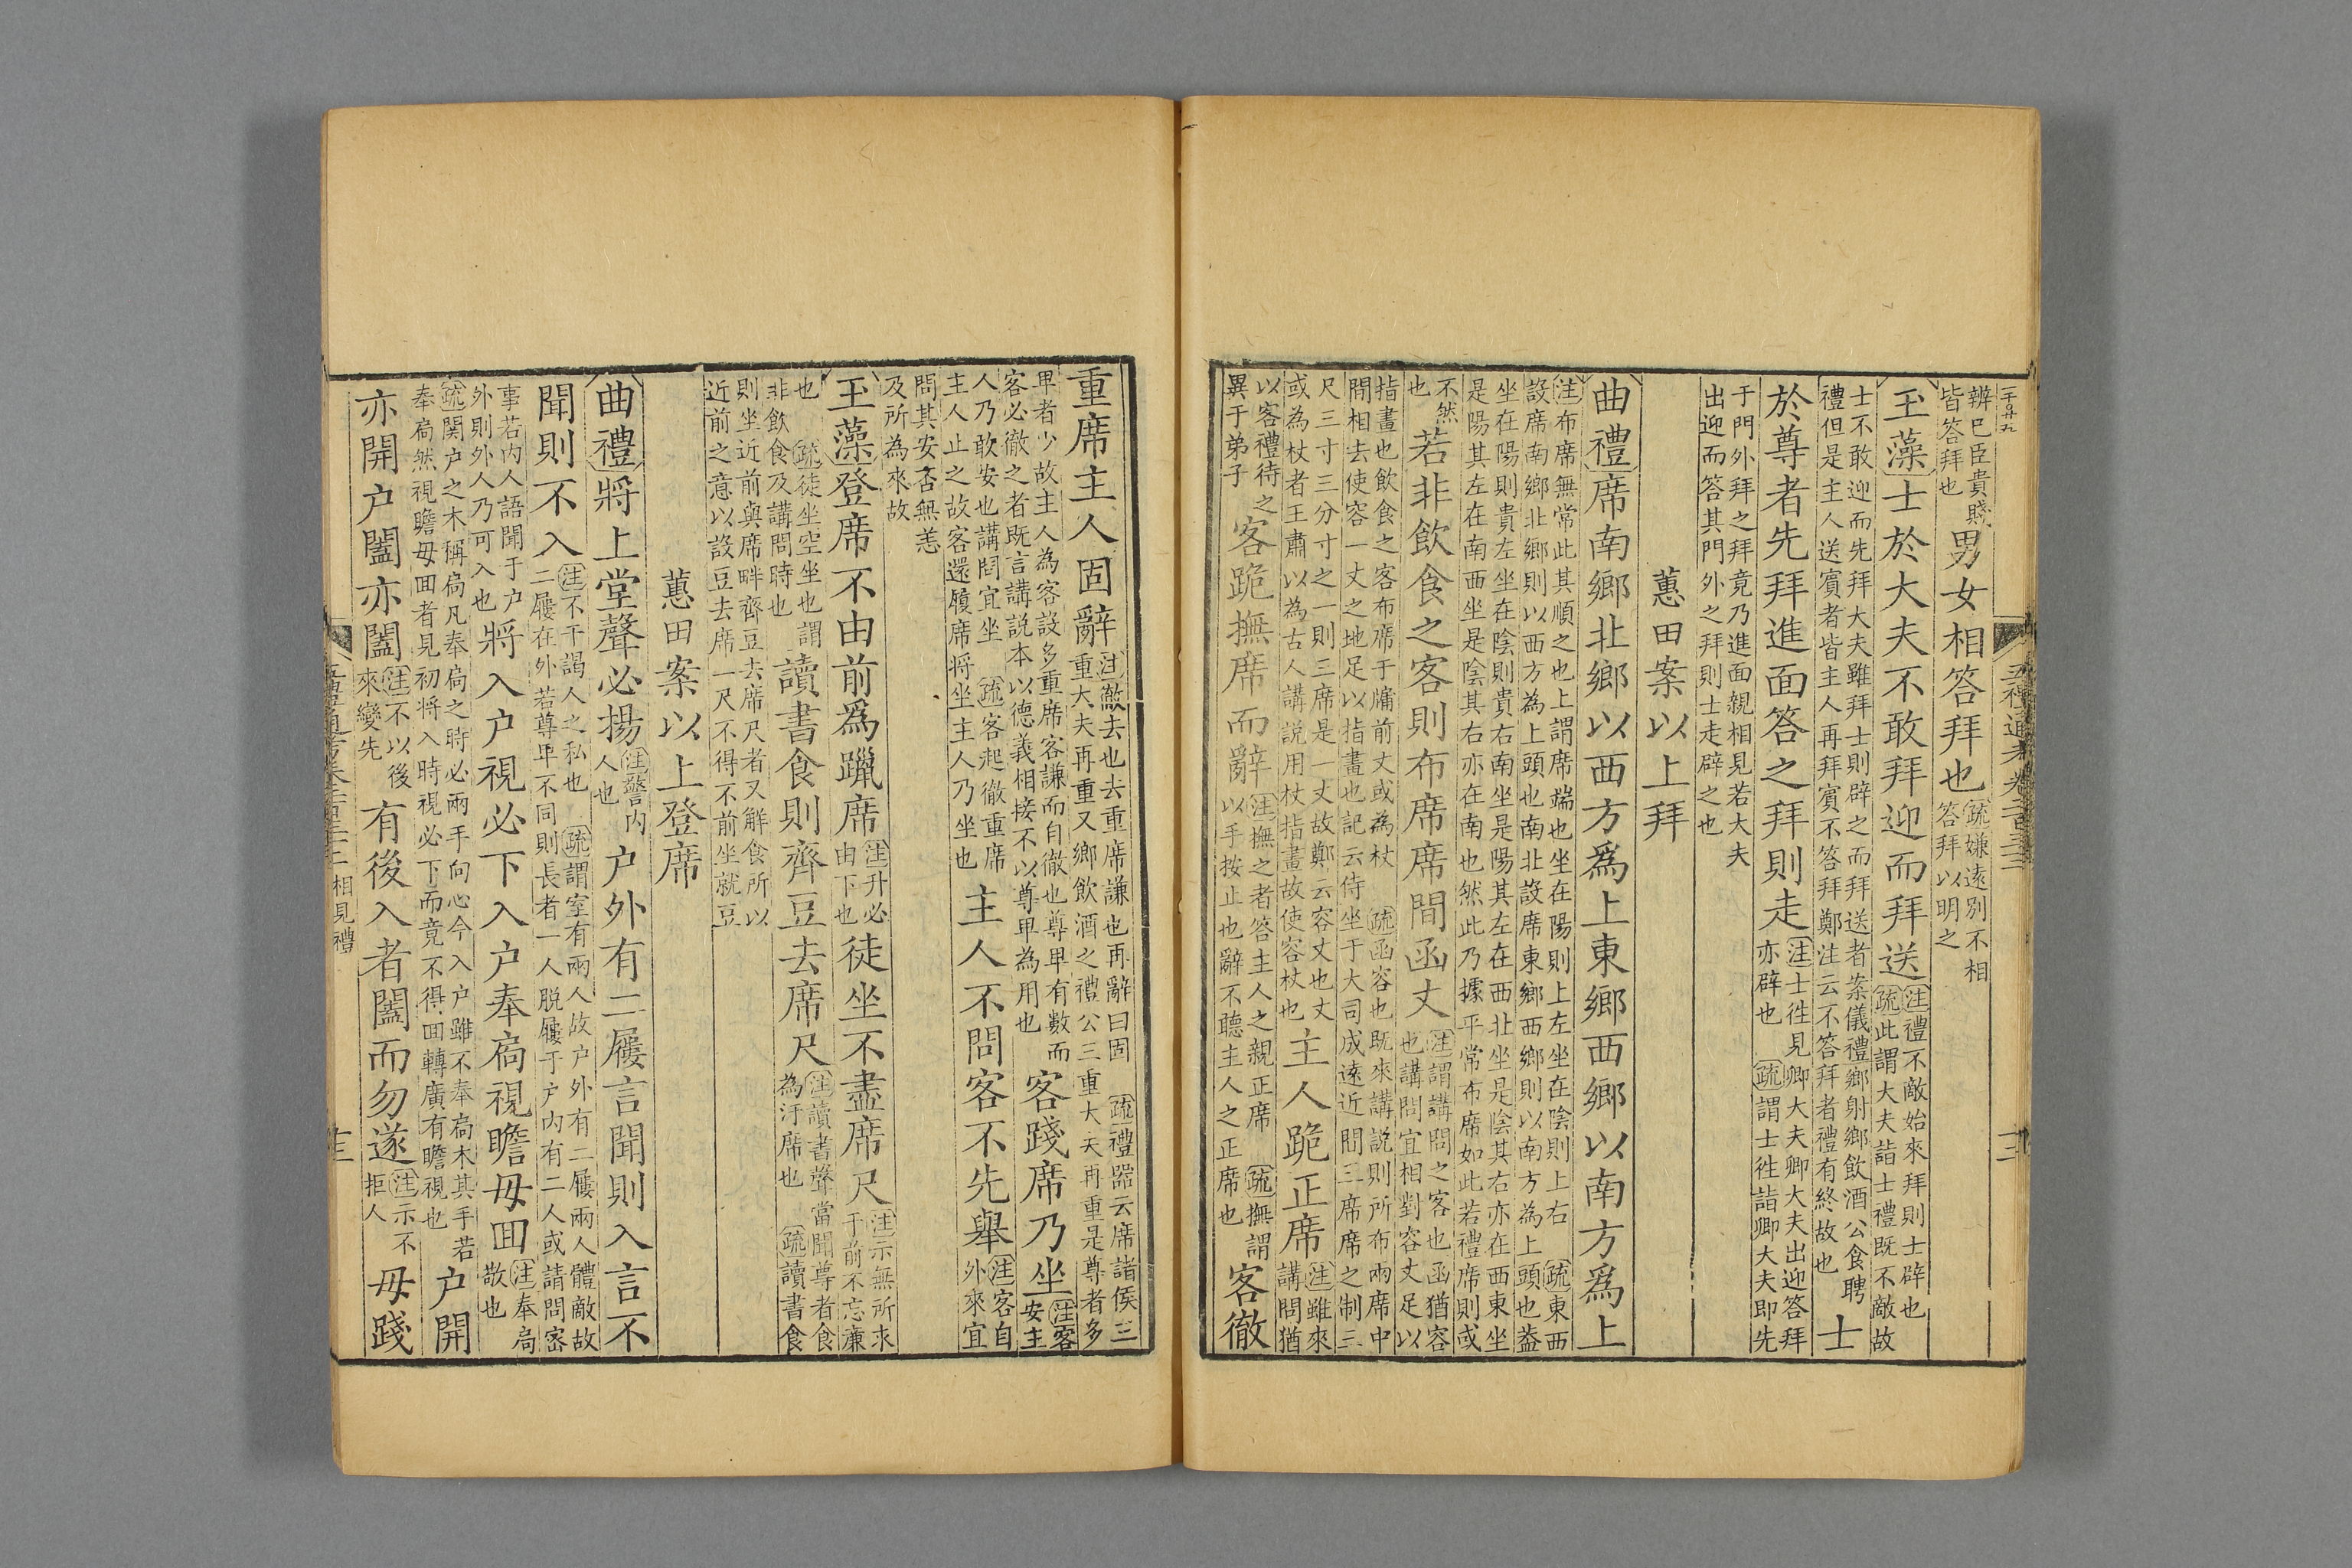 五禮通考卷二百三十二
十二
辨已臣貴賤皆答拜也男女相答拜也疏嫌遠別不相答拜以明之
玉藻士於大夫不敢拜迎而拜送注禮不敵始來拜則士辟也疏此謂大夫詣士禮既不敵故
士不敢迎而先拜大夫雖拜士則辟之而拜送者案儀禮鄉射鄉飲酒公食聘禮但是主人送賓者皆主人再拜賓不答拜鄭注云不答拜者禮有終故也士
於尊者先拜進面答之拜則走注士徃見卿大夫卿大夫出迎答拜亦辟也疏謂士徃詣卿大夫即先
于門外拜之拜竟乃進面親相見若大夫出迎而答其門外之拜則士走辟之也
蕙田案以上拜
曲禮席南鄉北鄉以西方爲上東鄉西鄉以南方爲上
注布席無常此其順之也上謂席端也坐在陽則上左坐在陰則上右疏東西設席南鄉北鄉則以西方為上頭也南北設席東鄉西鄉則以南方為上頭也葢
坐在陽則貴左坐在陰則貴右南坐是陽其左在西北坐是陰其右亦在西東坐是陽其左在南西坐是陰其右亦在南也然此乃據平常布席如此若禮席則或
不然也若非飲食之客則布席席間函丈注謂講問之客也函猶容也講問宜相對容丈足以
指畫也飲食之客布席于牖前丈或為杖疏函容也既來講說則所布兩席中間相去使容一丈之地足以指畫也記云侍坐于大司成遠近間三席席之制三
尺三寸三分寸之一則三席是一丈故鄭云容丈也丈或為杖者王肅以為古人講說用杖指畫故使容杖也主人跪正席注雖來講問猶
以客禮待之異于弟子客跪撫席而辭注撫之者答主人之親正席疏撫謂以手按止也辭不聽主人之正席也客徹
重席主人固辭注敵去也去重席謙也再辭曰固疏禮器云席諸侯三重大夫再重又鄉飲酒之禮公三重大夫再重是尊者多
卑者少故主人為客設多重席客謙而自徹也尊卑有數而客必徹之者既言講說本以德義相接不以尊卑為用也客踐席乃坐注客安主
人乃敢安也講問宜坐疏客起徹重席主人止之故客還履席將坐主人乃坐也主人不問客不先舉注客自外來宜
問其安否無恙及所為來故
玉藻登席不由前爲躐席注升必由下也徒坐不盡席尺注示無所求于前不忘亷
也疏徒坐空坐也謂非飲食及講問時也讀書食則齊豆去席尺注讀書聲當聞尊者食為汙席也疏讀書食
則坐近前與席畔齊豆去席尺者又解食所以近前之意以設豆去席一尺不得不前坐就豆
蕙田案以上登席
曲禮將上堂聲必揚注警内人也户外有二屨言聞則入言不
聞則不入注不干謁人之私也二屨在外若尊卑不同則長者一人脱屨于户内有二人或請問宻疏謂室有兩人故户外有二屨兩人體敵故
事若内人語聞于户外則外人乃可入也將入户視必下入户奉扃視瞻毋回注奉扃敬也
疏關户之木稱扃凡奉扃之時必兩手向心今入户雖不奉扃木其手若奉扃然視瞻毋回者見初將入時視必下而竟不得回轉廣有瞻視也户開
亦開户闔亦闔注不以後來變先有後入者闔而勿遂注示不拒人毋踐
相見禮